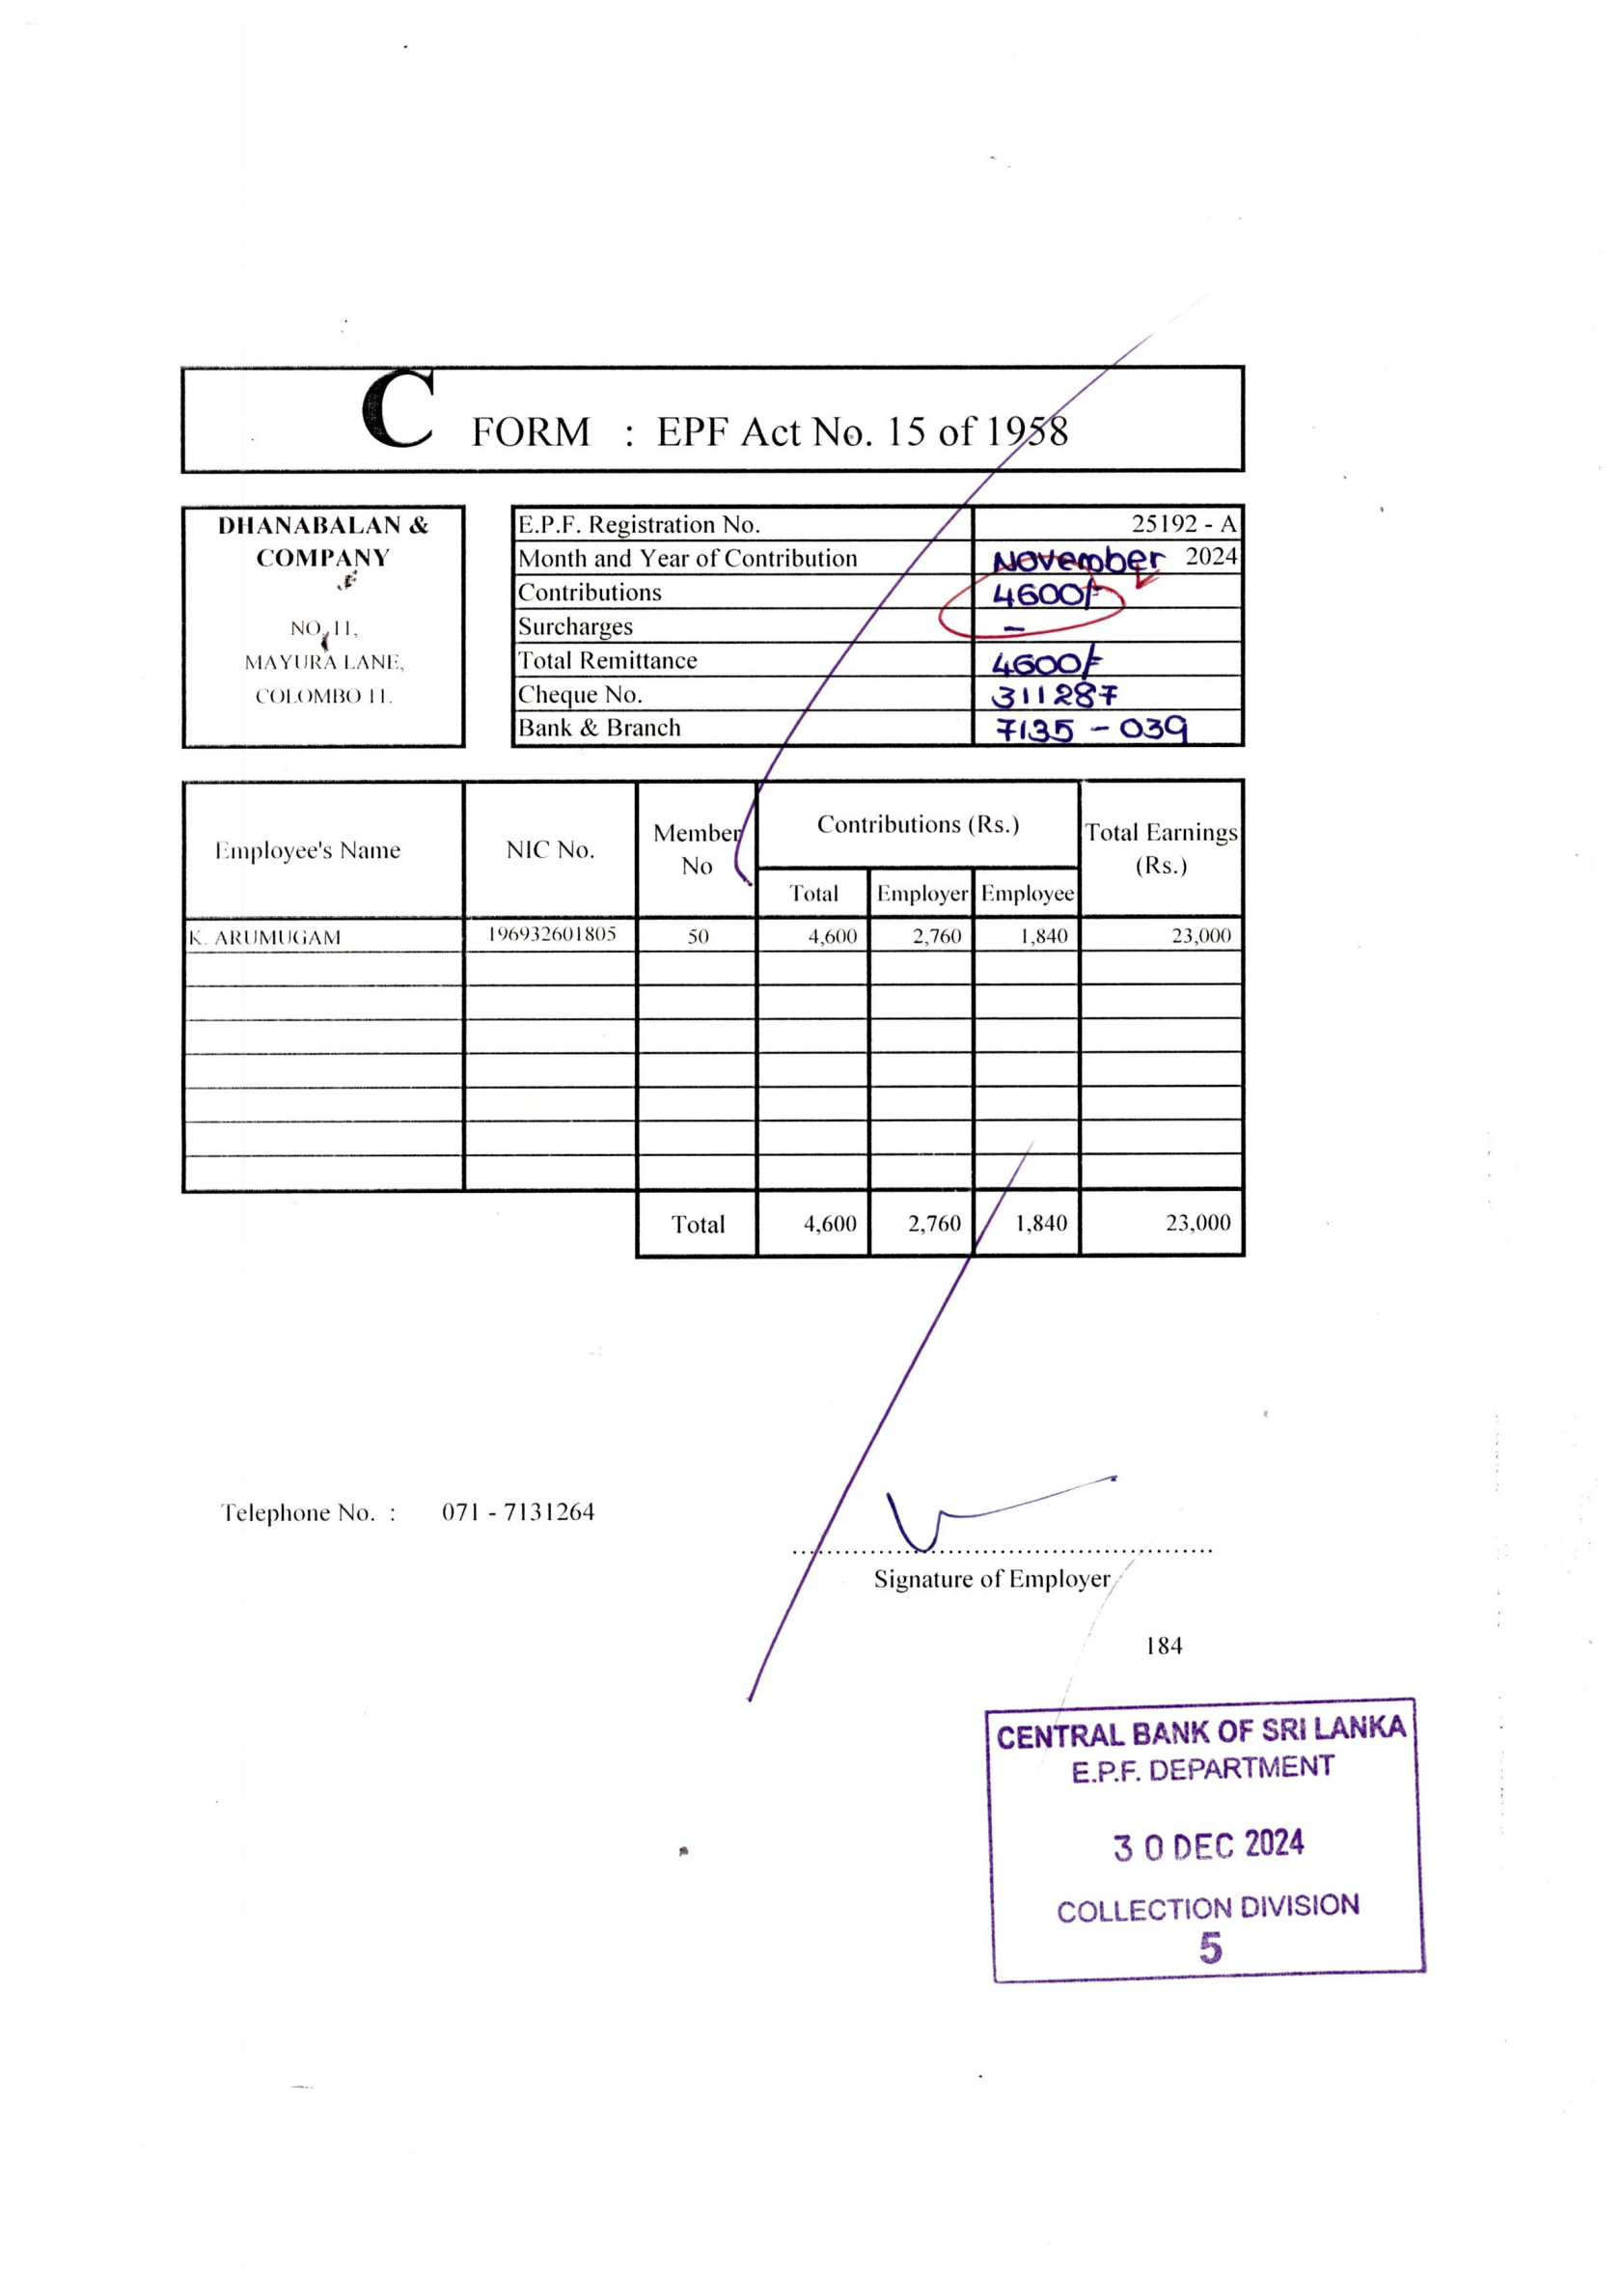 C FORM : EPF Act No. 15 of 1958
DHANABALAN &
COMPANY
NO, 11,
MAYURA LANE,
COLOMBO 11.
E.P.F. Registration No. 25192 - A
Month and Year of Contribution November 2024
Contributions 4600/-
Surcharges -
Total Remittance 4600/-
Cheque No. 311287
Bank & Branch 7135 - 039
Employee's Name NIC No. Member No Contributions (Rs.) Total Earnings (Rs.)
Total Employer Employee
K. ARUMUGAM 196932601805 50 4,600 2,760 1,840 23,000
Total 4,600 2,760 1,840 23,000
Telephone No. : 071 - 7131264
Signature of Employer
184
CENTRAL BANK OF SRI LANKA
E.P.F. DEPARTMENT
30 DEC 2024
COLLECTION DIVISION
5